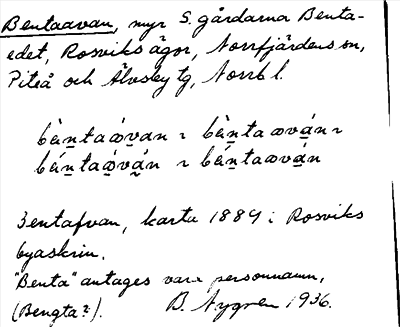 Bentaavan, myr S. gårdarna Benta-
edet, Rosviks ägor, Norrfjärdens sn,
Piteå och Älvsby tg, Norrb l.
bèn̲taὼvan ~ bèn̲taωvá̲n ~
bén̲taὼvá̲n ~ bén̲taωvá̲n
Bentafvan, karta 1889 i Rosviks
byaskrin.
"Benta" antages vara personnamn,
(Bengta?). B. Nygren 1936.